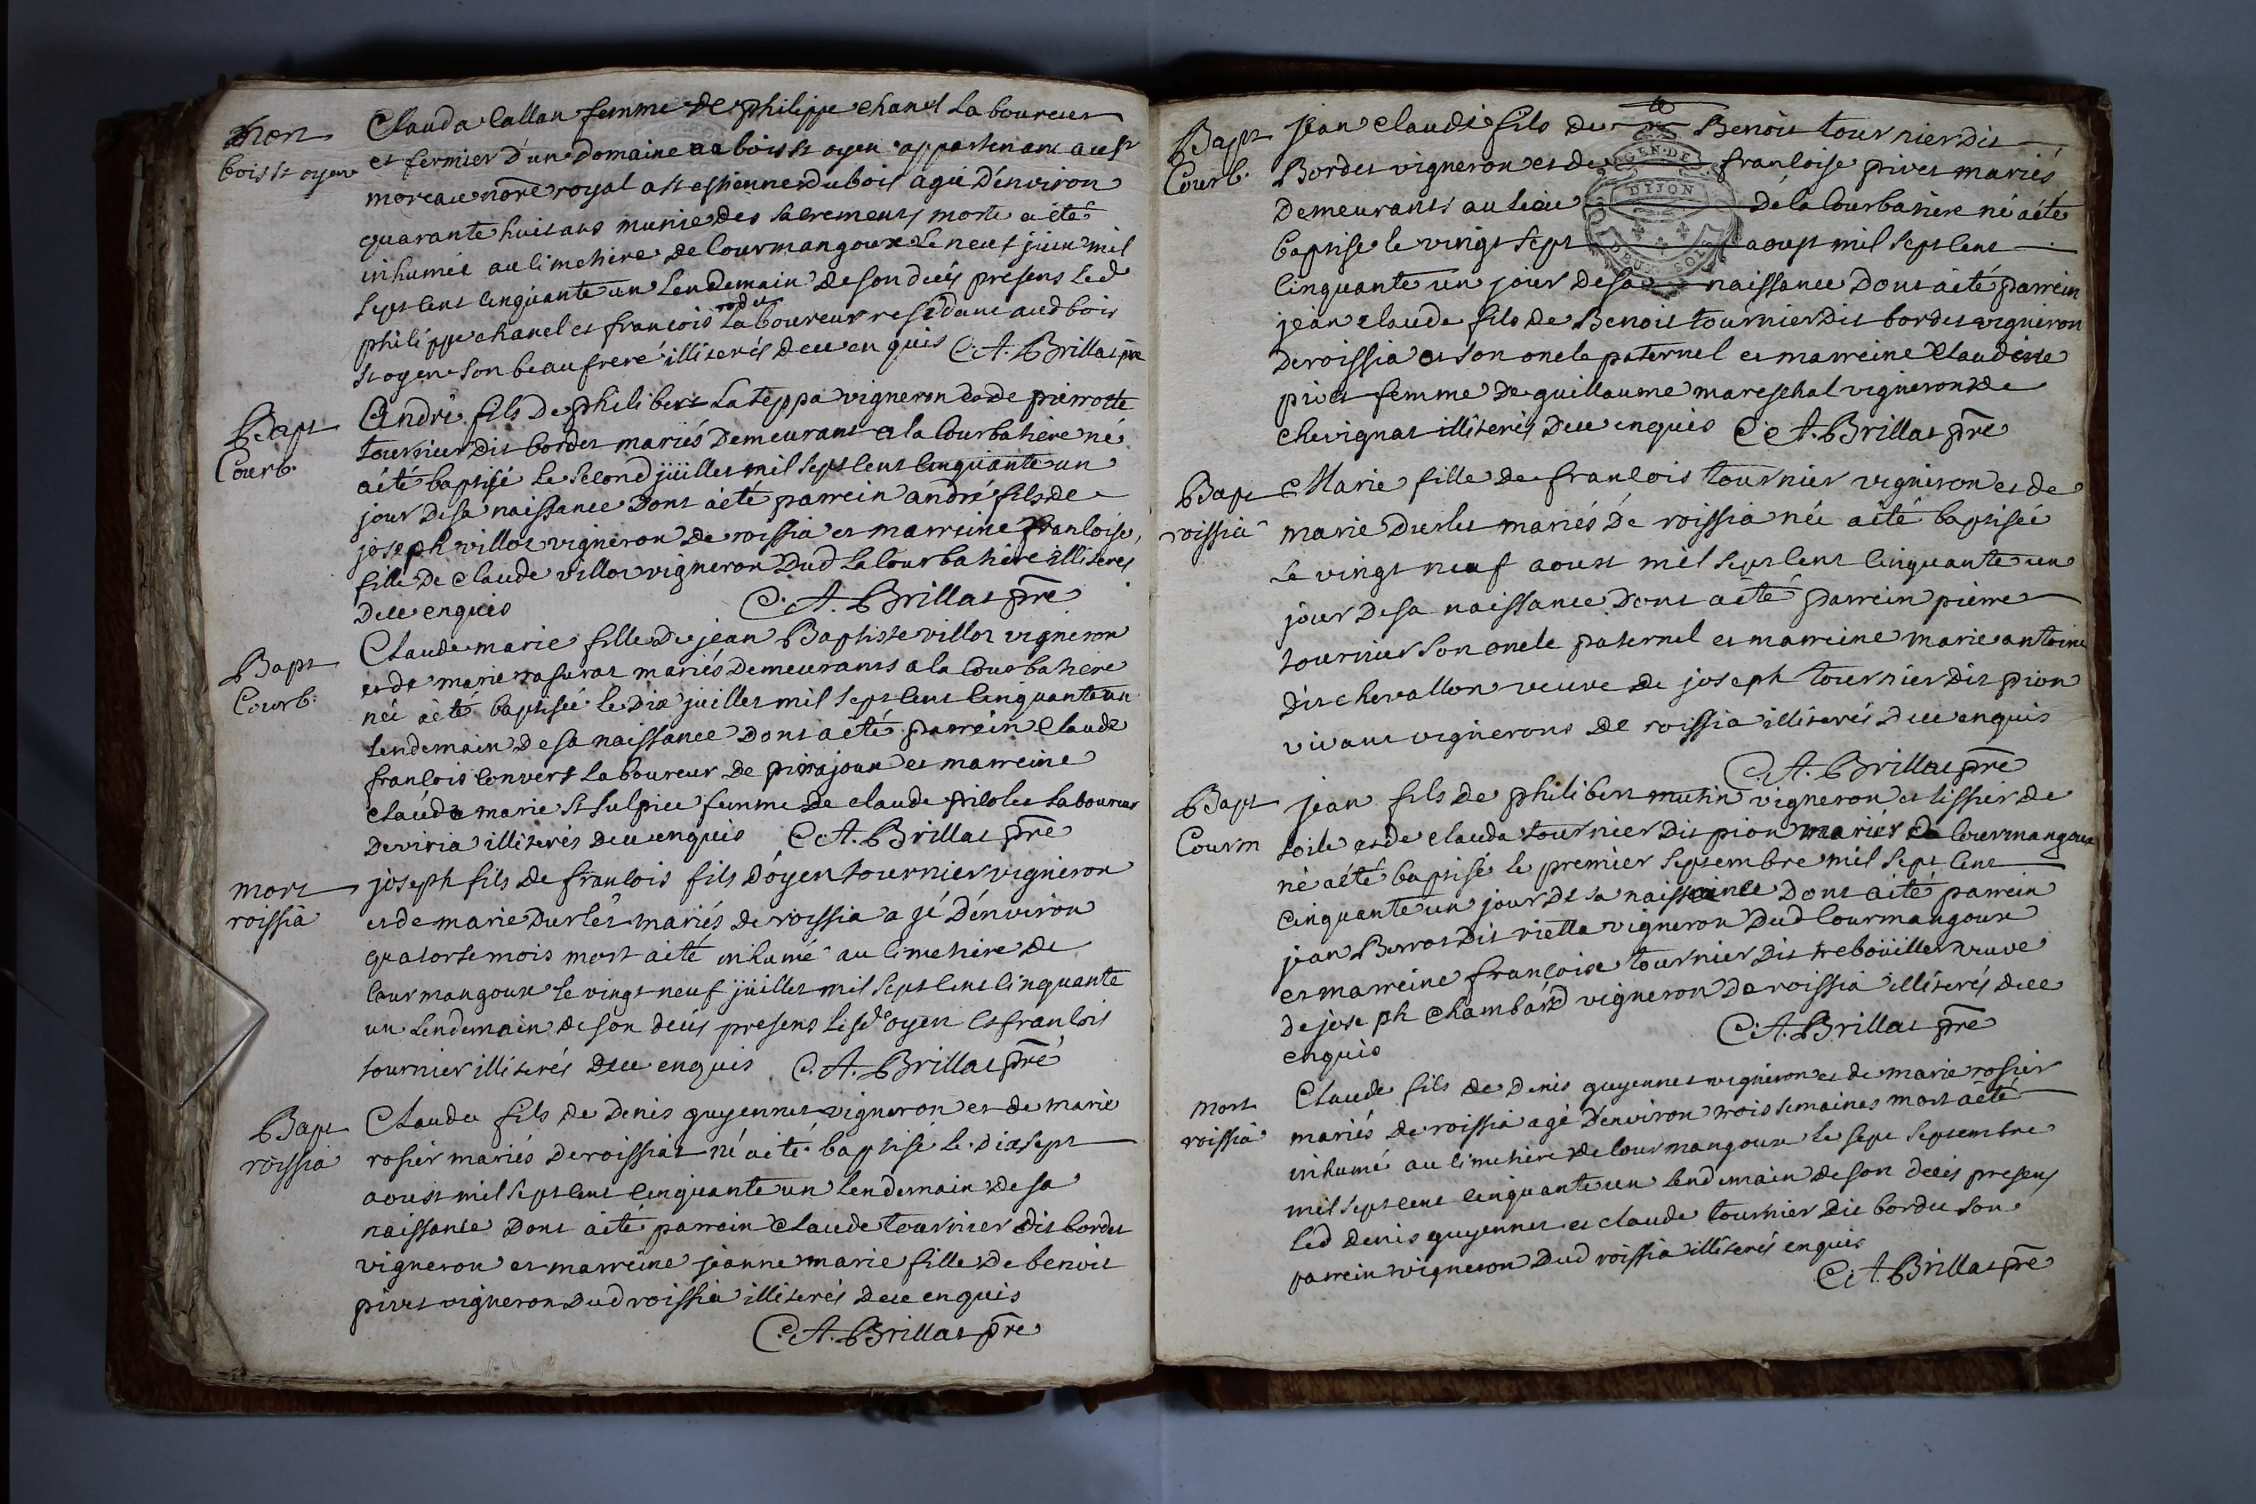 mort
bois st oyen
Clauda Callan femme de philippe chanel laboureur
et fermier d'un domaine aa bois st oyen appartenant au sr
moreau nore royal a st estienne du bois agée d'environ
quarante huit ans munie des sacremens, morte a été
inhumée au cimetiere de Courmangoux le neuf juin mil
sept cent cinquante un lendemain de son decés presens led
philippe chanel et francois laboureur residant aud bois
st oyen son beaufrere illiterés deue enquis C. A. Brillat pre
Bapt
Courb.
André fils de philibert lateppa vigneron et de pierrotte
tournier dit bordet mariés demeurant a la Courbatiere né
a été baptisé le second jüillet mil sept cent cinquante un
jour de sa naissance dont a été parrein andré fils de
joseph villot vigneron de roissia et marreine francoise,
fille de Claude villot vigneron dud la Courbatiere illiterés
deue enquis C. A. Brillat pre
Bapt
Courb.
Claude marie fille de jean Baptiste villot vigneron
et de marie rasurat mariés demeurants a la Courbatiere
née a été baptisée le dix juillet mil sept cent cinquante un
lendemain de sa naissance dont a été parrein Claude
françois Convert laboureur de pirajoux et marreine
Claude marie st sulpice femme de claude pilolet laboureur
de viria illiterés deue enquis C. A. Brillat pre
mort
roissia
joseph fils de francois fils d'oyen tournier vigneron
et de marie Durlet mariés de roissia agé d'environ
quatorse mois mort a été inhumé au cimetiere de
Courmangoux le vingt neuf jüillet mil sept cent cinquante
un lendemain de son decés presens lesd oyen et francois
tournier illiterés deue enquis C. A. Brillat pre
Bapt
roissia
Claude fils de Denis guyennet vigneron et de marie
rosier mariés de roissiat né a été baptisé le dix sept
aoust mil sept cent cinquante un lendemain de sa
naissance dont a été parrein Claude tournier dit bordet
vigneron et marreine jeanne marie fille de benoit
pivet vigneron dud roissia illiterés deue enquis
C. A. Brillat pre
Bapt
Courb.
jean claude fils de Benoit tournier dit
Bordet vigneron et de francoise pivet mariés
demeurants au lieu de la Courbatiere né a été
baptisé le vingt sept aoust mil sept cent
cinquante un jour de sa naissance dont a été parrein
jean claude fils de Benoit tournier dit bordet vigneron
de roissia et son oncle paternel et marreine Claudine
pivet femme de guillaume mareschal vigneron de
chevignat illiterés deue enquis C. A. Brillat pre
GEN. DE
DIJON
Bapt
roissia
Marie fille de francois tournier vigneron et de
marie Durlet mariés de roissia née a été baptisée
le vingt neuf aoust mil sept cent cinquante un
jour de sa naissance dont a été parrein pierre
tournier son oncle paternel et marreine marie antoine
dit chevallon veuve de joseph tournier dit pion
vivant vignerons de roissia illiterés deue enquis
C. A. Brillat pre
Bapt
Courm
jean fils de philibert mutin vigneron et tissier de
toile et de clauda tournier dit pion mariés de Courmangoux
né a été baptisé le premier septembre mil sept cent
cinquante un jour de sa naissance dont a été parrein
jean Berrot dit vietta vigneron dud Courmangoux
et marreine françoise tournier dit trebouillet veuve
de joseph Chambard vigneron de roissia illiterés deue
enquis C. A. Brillat pre
mort
roissia
Claude fils de Denis guyennet vigneron et de marie rosier
mariés de roissia agé d'environ trois semaines mort a été
inhumé au cimetiere de Courmangoux le sept septembre
mil sept cent cinquante un lendemain de son decés presens
led denis guyennet et claude tournier dit bordet son
parrein vigneron dud roissia illiterés enquis
C. A. Brillat pre